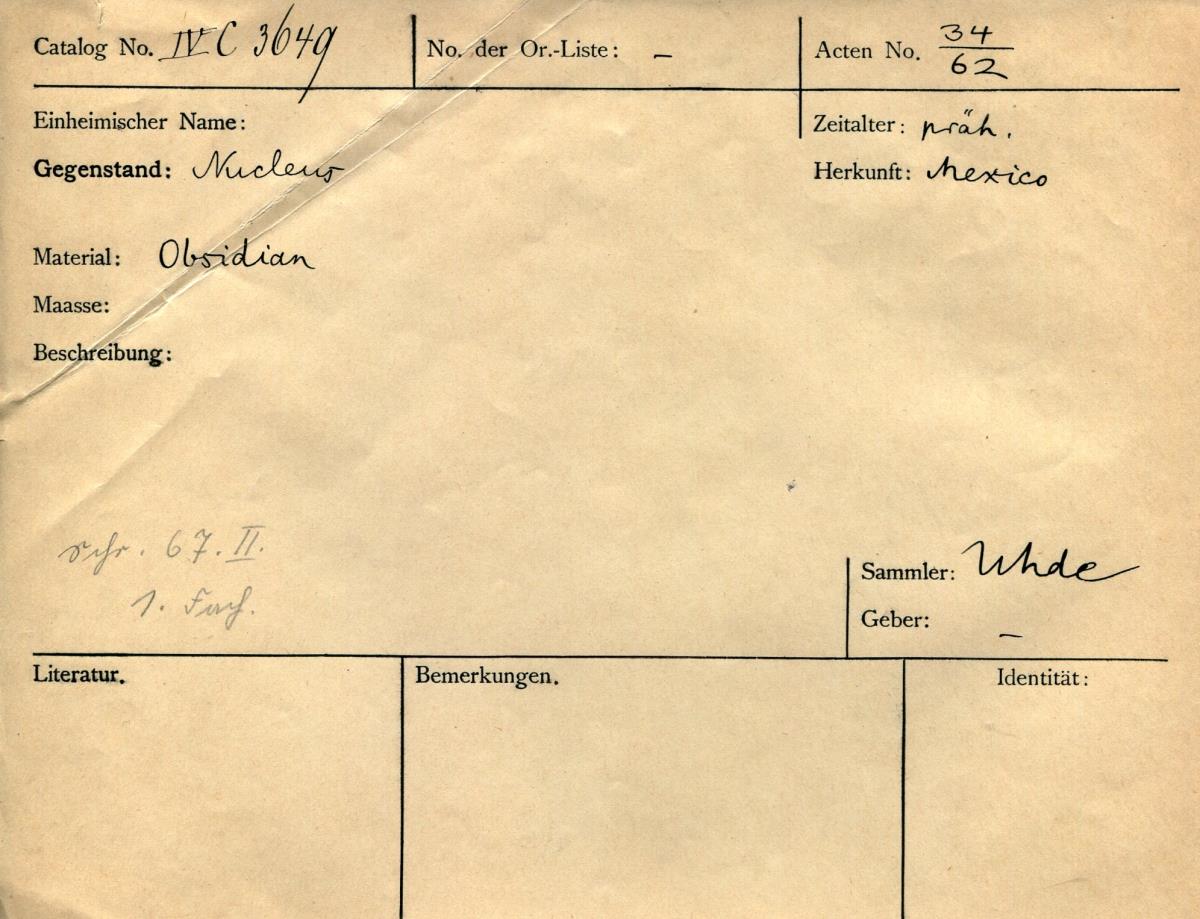 Catalog No. IV C 3649 No. der Or.-Liste: – Acten No. 34/62
Einheimischer Name: Zeitalter: präh.
Gegenstand: Nucleus Herkunft: Mexico
Material: Obsidian
Maasse:
Beschreibung:
Schr. 67. II.
1. Fach.
Sammler: Uhde
Geber: –
Literatur. Bemerkungen. Identität: